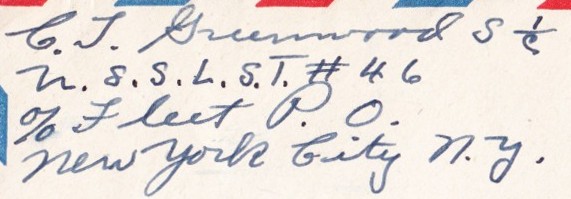 C. J. Greenwood S 1/c
U. S. S. L. S. T. # 46
c/o Fleet P. O.
New York City N. Y.